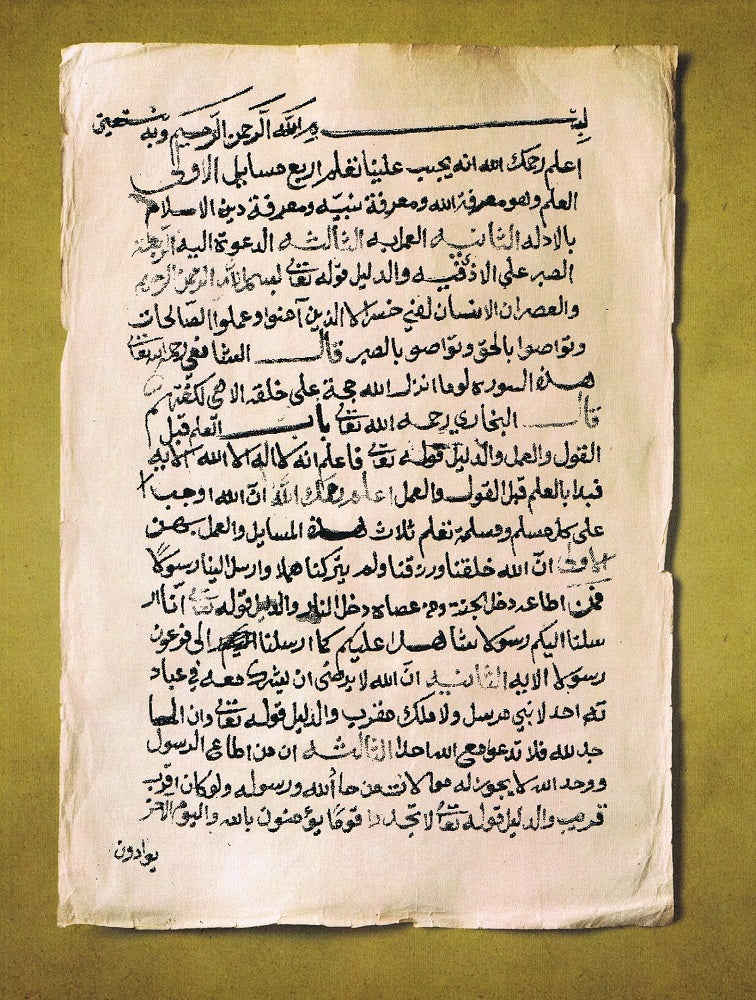 بسم الله الرحمن الرحيم وبه نستعين
اعلم رحمك الله انه يجب علينا تعلم اربع مسايل الاولى
العلم وهو معرفة الله ومعرفة نبيه ومعرفة دين الاسلام
بالادله الثانيه العمل به الثالثه الدعوة اليه الرابعة
الصبر على الاذى فيه والدليل قوله تعالى بسم الله الرحمن الرحيم
والعصر ان الانسان لفي خسر الا الذين آمنوا وعملوا الصالحات
وتواصوا بالحق وتواصو بالصبر قال الشافعي رحمه الله تعالى
هذه السوره لو ما انزل الله حجة على خلقه الا هي لكفتهم
قال البخاري رحمه الله تعالى باب العلم قبل
القول والعمل والدليل قوله تعالى فاعلم انه لا اله الا الله الايه
فبدا بالعلم قبل القول والعمل اعلم رحمك الله انّ الله اوجب
على كل مسلم ومسلمة تعلم ثلاث هذه المسايل والعمل بهن
الاولى انّ الله خلقنا ورزقنا ولم يتركنا هملا وارسل الينا رسولًا
فمن اطاعه دخل الجنة ومن عصاه دخل النار والدليل قوله تعالى انّا ار
سلنا اليكم رسولا شاهدا عليكم كما ارسلنا الى فرعون
رسولا الايه الثانيه انّ الله لا يرضى ان يشرك معه في عباد
ته احد لا نبي مرسل ولا ملك مقرب والدليل قوله تعالى وان المسا
جد لله فلا تدعو مع الله احدا الثالثه ان من اطاع الرسول
ووحد الله لا يجوز له موالات من حاد الله ورسوله ولو كان اقرب
قريب والدليل قوله تعالى لا تجد قومًا يؤمنون بالله واليوم الاخر
يوادون